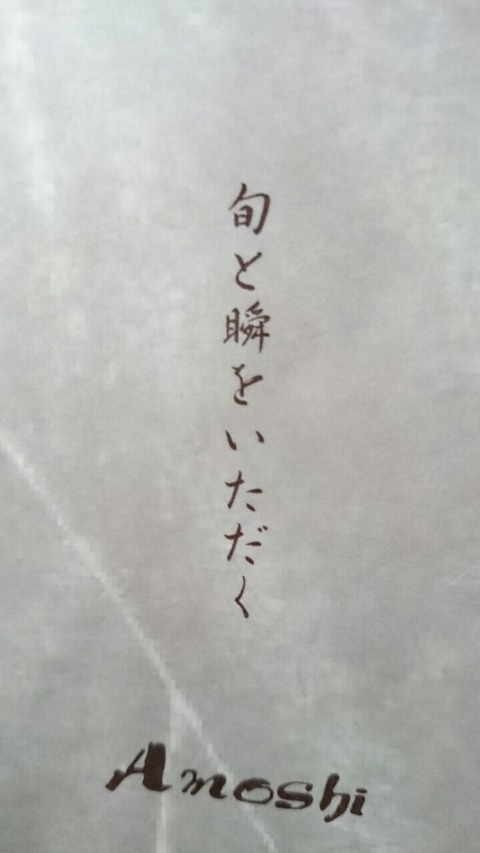 旬と瞬をいただく
Amoshi